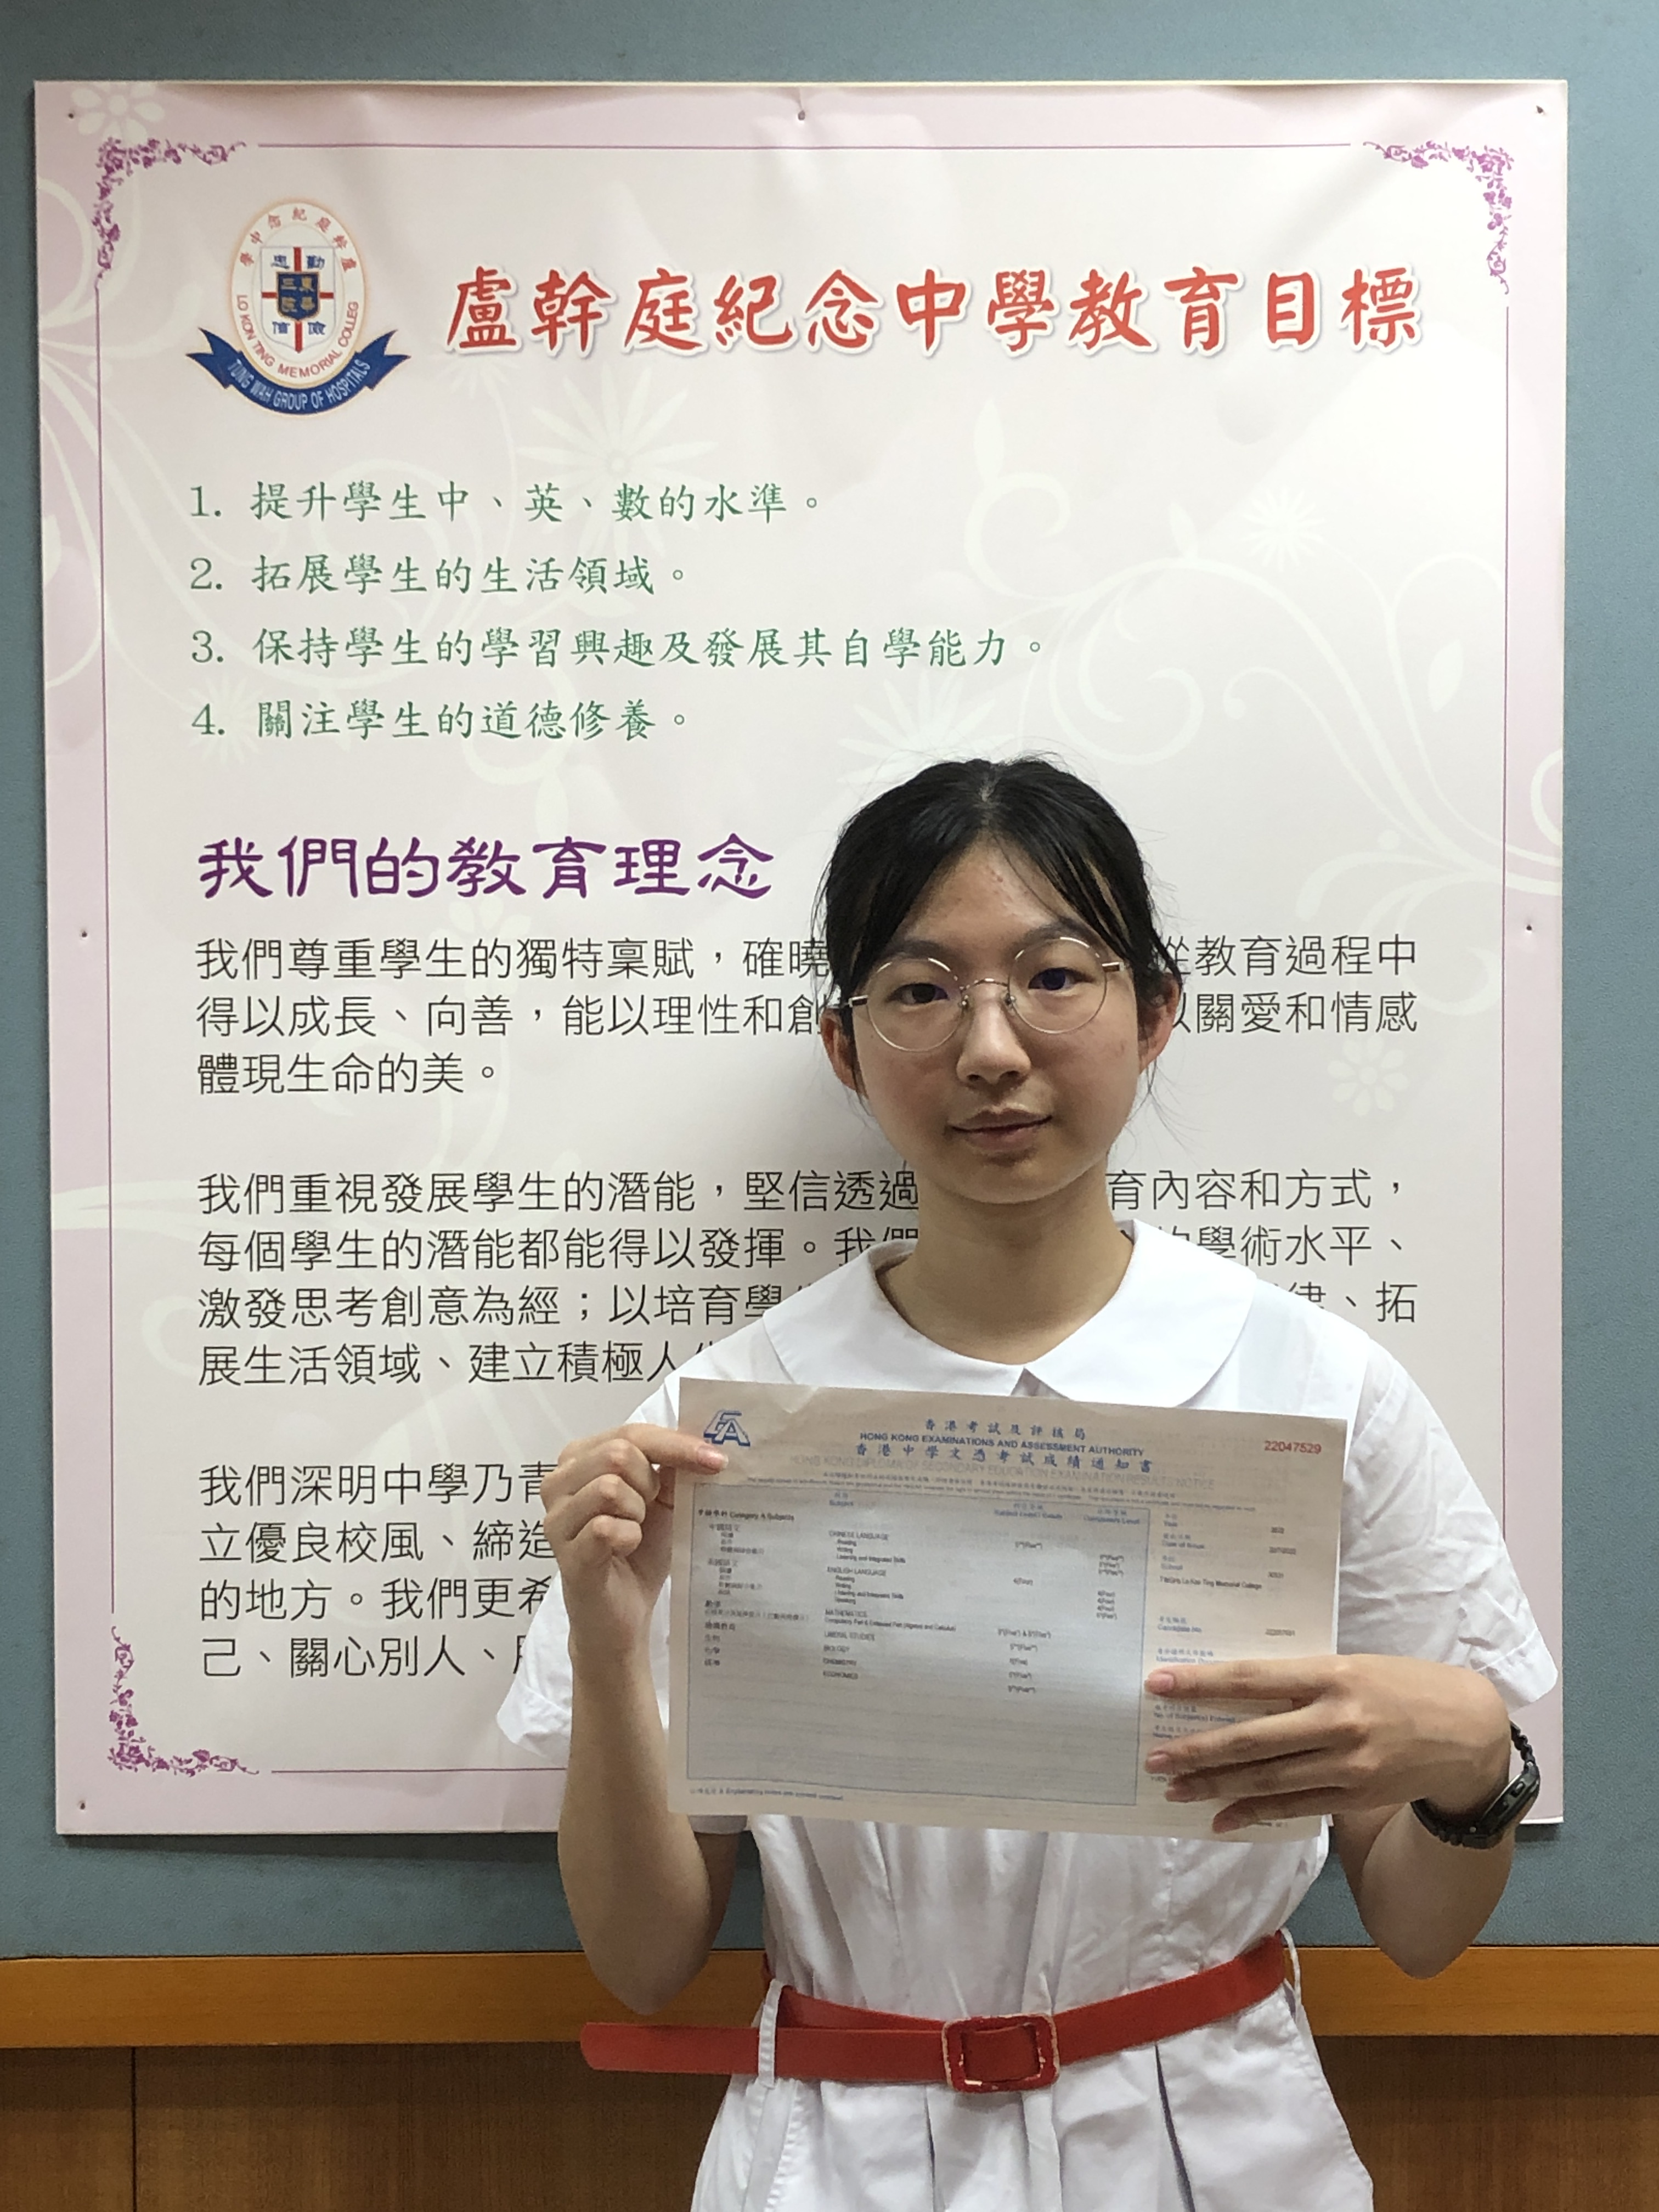 盧幹庭紀念中學
忠勤
東華三院
信儉
LO KON TING MEMORIAL COLLEG
TUNG WAH GROUP OF HOSPITALS
盧幹庭紀念中學教育目標
1. 提升學生中、英、數的水準。
2. 拓展學生的生活領域。
3. 保持學生的學習興趣及發展其自學能力。
4. 關注學生的道德修養。
我們的教育理念
我們尊重學生的獨特稟賦，確曉 從教育過程中
得以成長、向善，能以理性和創 以關愛和情感
體現生命的美。
我們重視發展學生的潛能，堅信透過 育內容和方式，
每個學生的潛能都能得以發揮。我們 的學術水平、
激發思考創意為經；以培育學 律、拓
展生活領域、建立積極人
我們深明中學乃青
立優良校風、締造
的地方。我們更希
己、關心別人、
香港考試及評核局
HONG KONG EXAMINATIONS AND ASSESSMENT AUTHORITY
22047529
香港中學文憑考試成績通知書
HONG KONG DIPLOMA OF SECONDARY EDUCATION EXAMINATION RESULTS NOTICE
科目
Subject
甲類學科 Category A Subjects
中國語文 CHINESE LANGUAGE
Reading
Writing
Listening and Integrated Skills
英國語文 ENGLISH LANGUAGE
Reading
Writing
Listening and Integrated Skills
Speaking
數學 MATHEMATICS
通識教育 LIBERAL STUDIES
生物 BIOLOGY
化學 CHEMISTRY
經濟 ECONOMICS